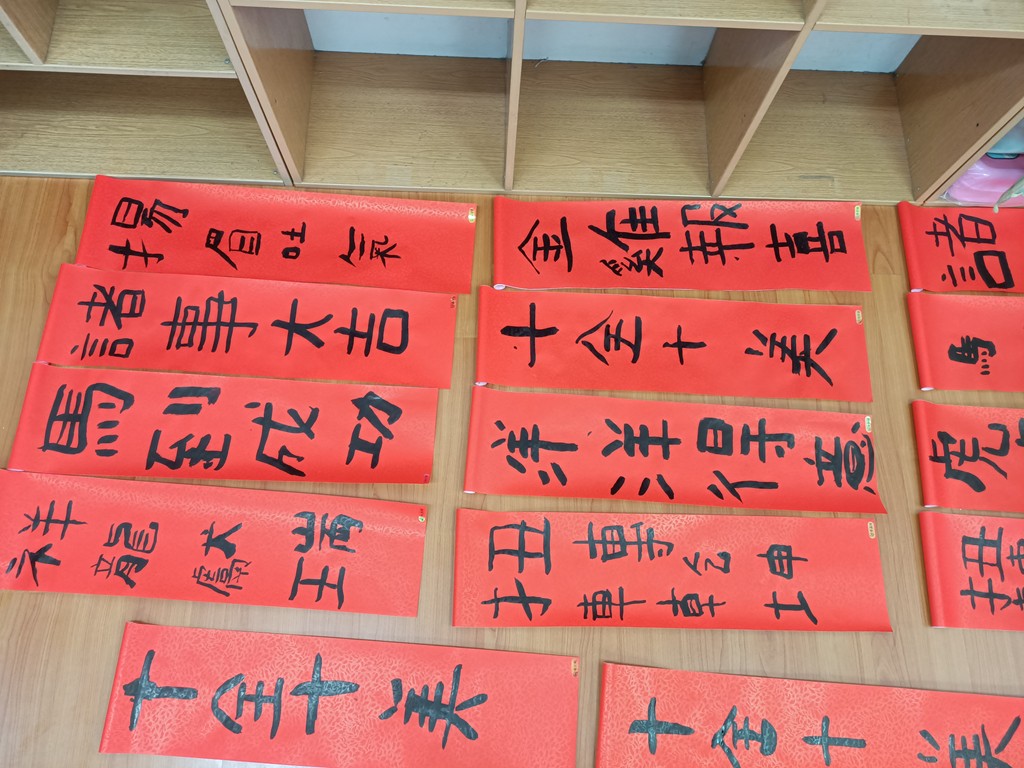 揚眉吐氣
金雞報喜
諸
諸事大吉
十全十美
馬
馬到成功
洋洋得意
虎
祥龍獻瑞
扭轉乾坤
扭
十全十美
十全十美